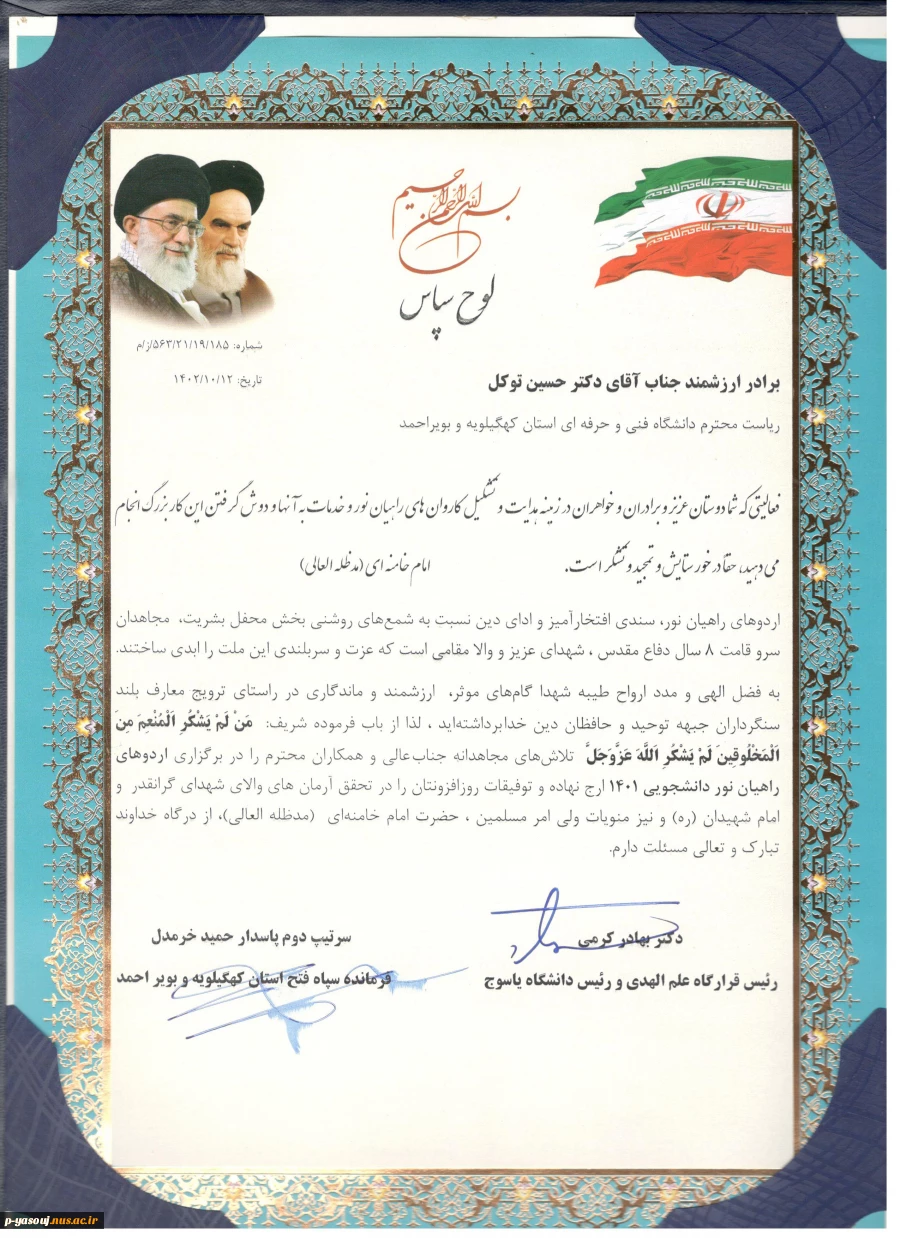 بسم الله الرحمن الرحیم
لوح سپاس
شماره: ۵۶۳/۲۱/۱۹/۱۸۵/ز/م
تاریخ: ۱۴۰۲/۱۰/۱۲
برادر ارزشمند جناب آقای دکتر حسین توکل
ریاست محترم دانشگاه فنی و حرفه ای استان کهگیلویه و بویراحمد
فعالیتی که شما دوستان عزیز و برادران و خواهران در زمینه هدایت و تشکیل کاروان های راهیان نور و خدمات به آنها و دوش گرفتن این کار بزرگ انجام
می دهید، حقا در خور ستایش و تمجید و تشکر است. امام خامنه ای (مدظله العالی)
اردوهای راهیان نور، سندی افتخارآمیز و ادای دین نسبت به شمع‌های روشنی بخش محفل بشریت، مجاهدان
سرو قامت ۸ سال دفاع مقدس ، شهدای عزیز و والا مقامی است که عزت و سربلندی این ملت را ابدی ساختند.
به فضل الهی و مدد ارواح طیبه شهدا گام‌های موثر، ارزشمند و ماندگاری در راستای ترویج معارف بلند
سنگرداران جبهه توحید و حافظان دین خدابرداشته‌اید ، لذا از باب فرموده شریف: مَنْ لَمْ یَشْکُرِ اَلْمُنْعِمَ مِنَ
اَلْمَخْلُوقِینَ لَمْ یَشْکُرِ اَللَّهَ عَزَّوَجَلَّ تلاش‌های مجاهدانه جناب‌عالی و همکاران محترم را در برگزاری اردوهای
راهیان نور دانشجویی ۱۴۰۱ ارج نهاده و توفیقات روزافزونتان را در تحقق آرمان های والای شهدای گرانقدر و
امام شهیدان (ره) و نیز منویات ولی امر مسلمین ، حضرت امام خامنه‌ای (مدظله العالی)، از درگاه خداوند
تبارک و تعالی مسئلت دارم.
دکتر بهادر کرمی
رئیس قرارگاه علم الهدی و رئیس دانشگاه یاسوج
سرتیپ دوم پاسدار حمید خرمدل
فرمانده سپاه فتح استان کهگیلویه و بویر احمد
p-yasouj.nus.ac.ir